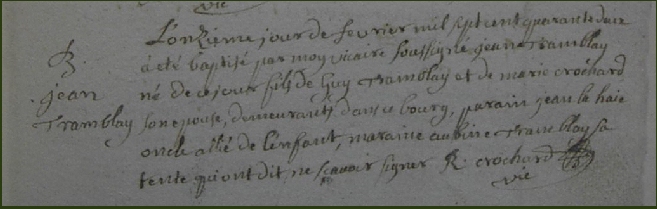 vie
L'onzieme jour de fevrier mil sept cent quarante deux
B.
a été baptisé par moy vicaire soussigné jean Tramblay
jean
né de ce jour fils de Guy Tramblay et de marie crochard
Tramblay
son epouse, demeurants dans ce bourg, parain jean la haie
oncle allié de l'enfant, maraine aubine Tramblay sa
tente qui ont dit ne scavoir signer R. crochard
vic